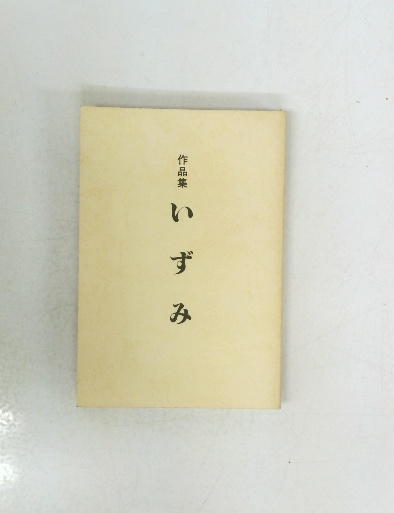 作品集
いずみ